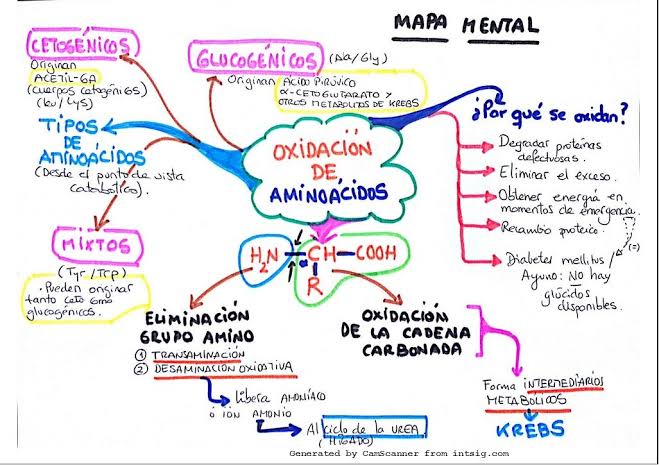 MAPA MENTAL
CETOGÉNICOS
Originan
ACETIL-CoA
(cuerpos cetogénicos)
(leu/Lys)
GLUCOGÉNICOS (Ala/Gly)
Originan ÁCIDO PIRÚVICO
α-CETOGLUTARATO Y
OTROS METABOLITOS DE KREBS
TIPOS
DE
AMINOÁCIDOS
(Desde el punto de vista
catabólico).
MIXTOS
(Tyr/Trp)
· Pueden originar
tanto ceto como
glucogénicos.
OXIDACIÓN
DE
AMINOÁCIDOS
¿Por qué se oxidan?
Degradar proteínas
defectuosas.
Eliminar el exceso.
Obtener energía en
momentos de emergencia.
Recambio proteico.
(=)
Diabetes mellitus /
Ayuno: NO hay
glúcidos
disponibles.
H₂N-CH-COOH
R
ELIMINACIÓN
GRUPO AMINO
① TRANSAMINACIÓN
② DESAMINACION OXIDATIVA
Libera AMONÍACO
o ión AMONIO
Al ciclo de la UREA
(HÍGADO)
OXIDACIÓN
DE LA CADENA
CARBONADA
Forma INTERMEDIARIOS
METABÓLICOS
KREBS
Generated by CamScanner from intsig.com